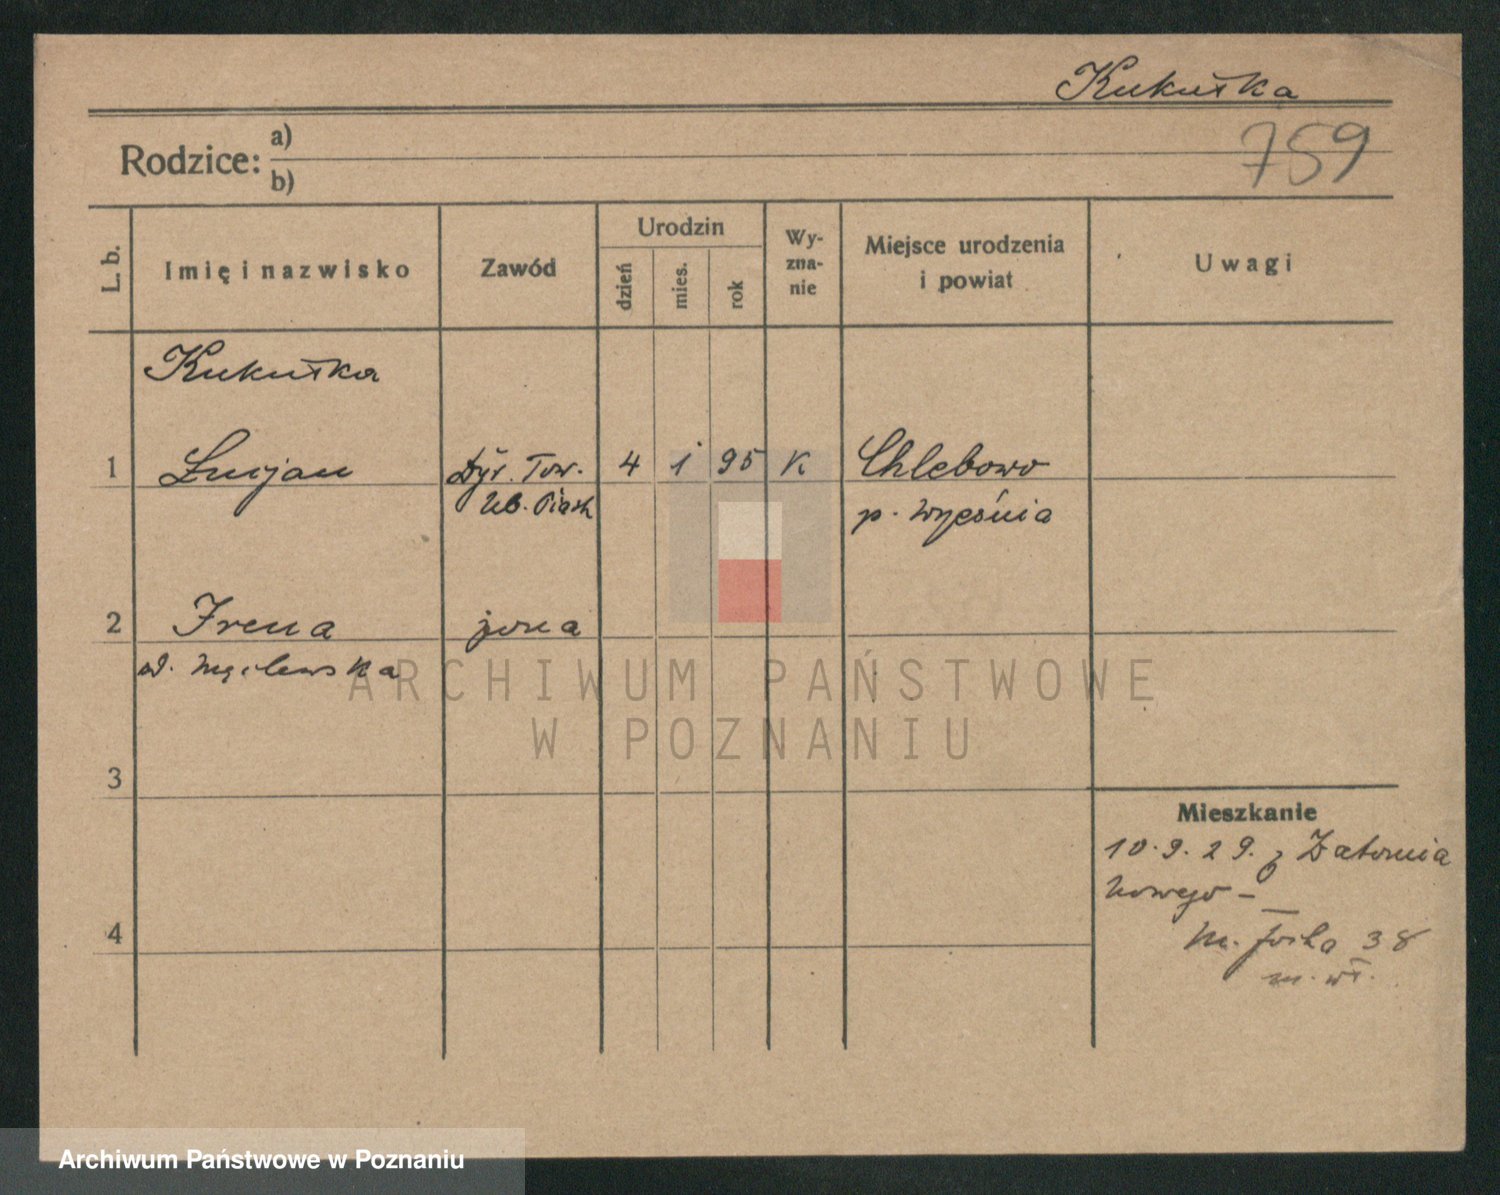 Kukułka
759
Rodzice: a)
b)
L. b.
Imię i nazwisko
Zawód
Urodzin
dzień
mies.
rok
Wy-
zna-
nie
Miejsce urodzenia
i powiat
Uwagi
Kukułka
1 Lucjan Dyr. Tow. 4 1 95 K Chlebowo
Ub. Piast p. Września
2 Irena żona
3
4
Mieszkanie
10.9.29. z Zatomia
Nowego –
M. Focha 38
m. wł.
ARCHIWUM PAŃSTWOWE
W POZNANIU
Archiwum Państwowe w Poznaniu